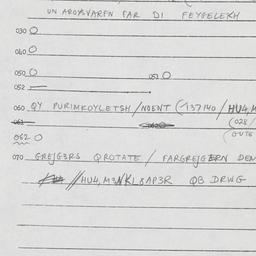 UN AROYSVARFN FAR DI FEYGELEKH
030 O
040 O
050 O 053 O
052
060 QY PURIMKOYLETSH/NOENT (737140/HU4,M
061 (028/
062 O GUTE
070 GREJG3RS QROTATE/FARGREJG3RN DEN
//HU4,M3N/KL8AP3R QB DRWG